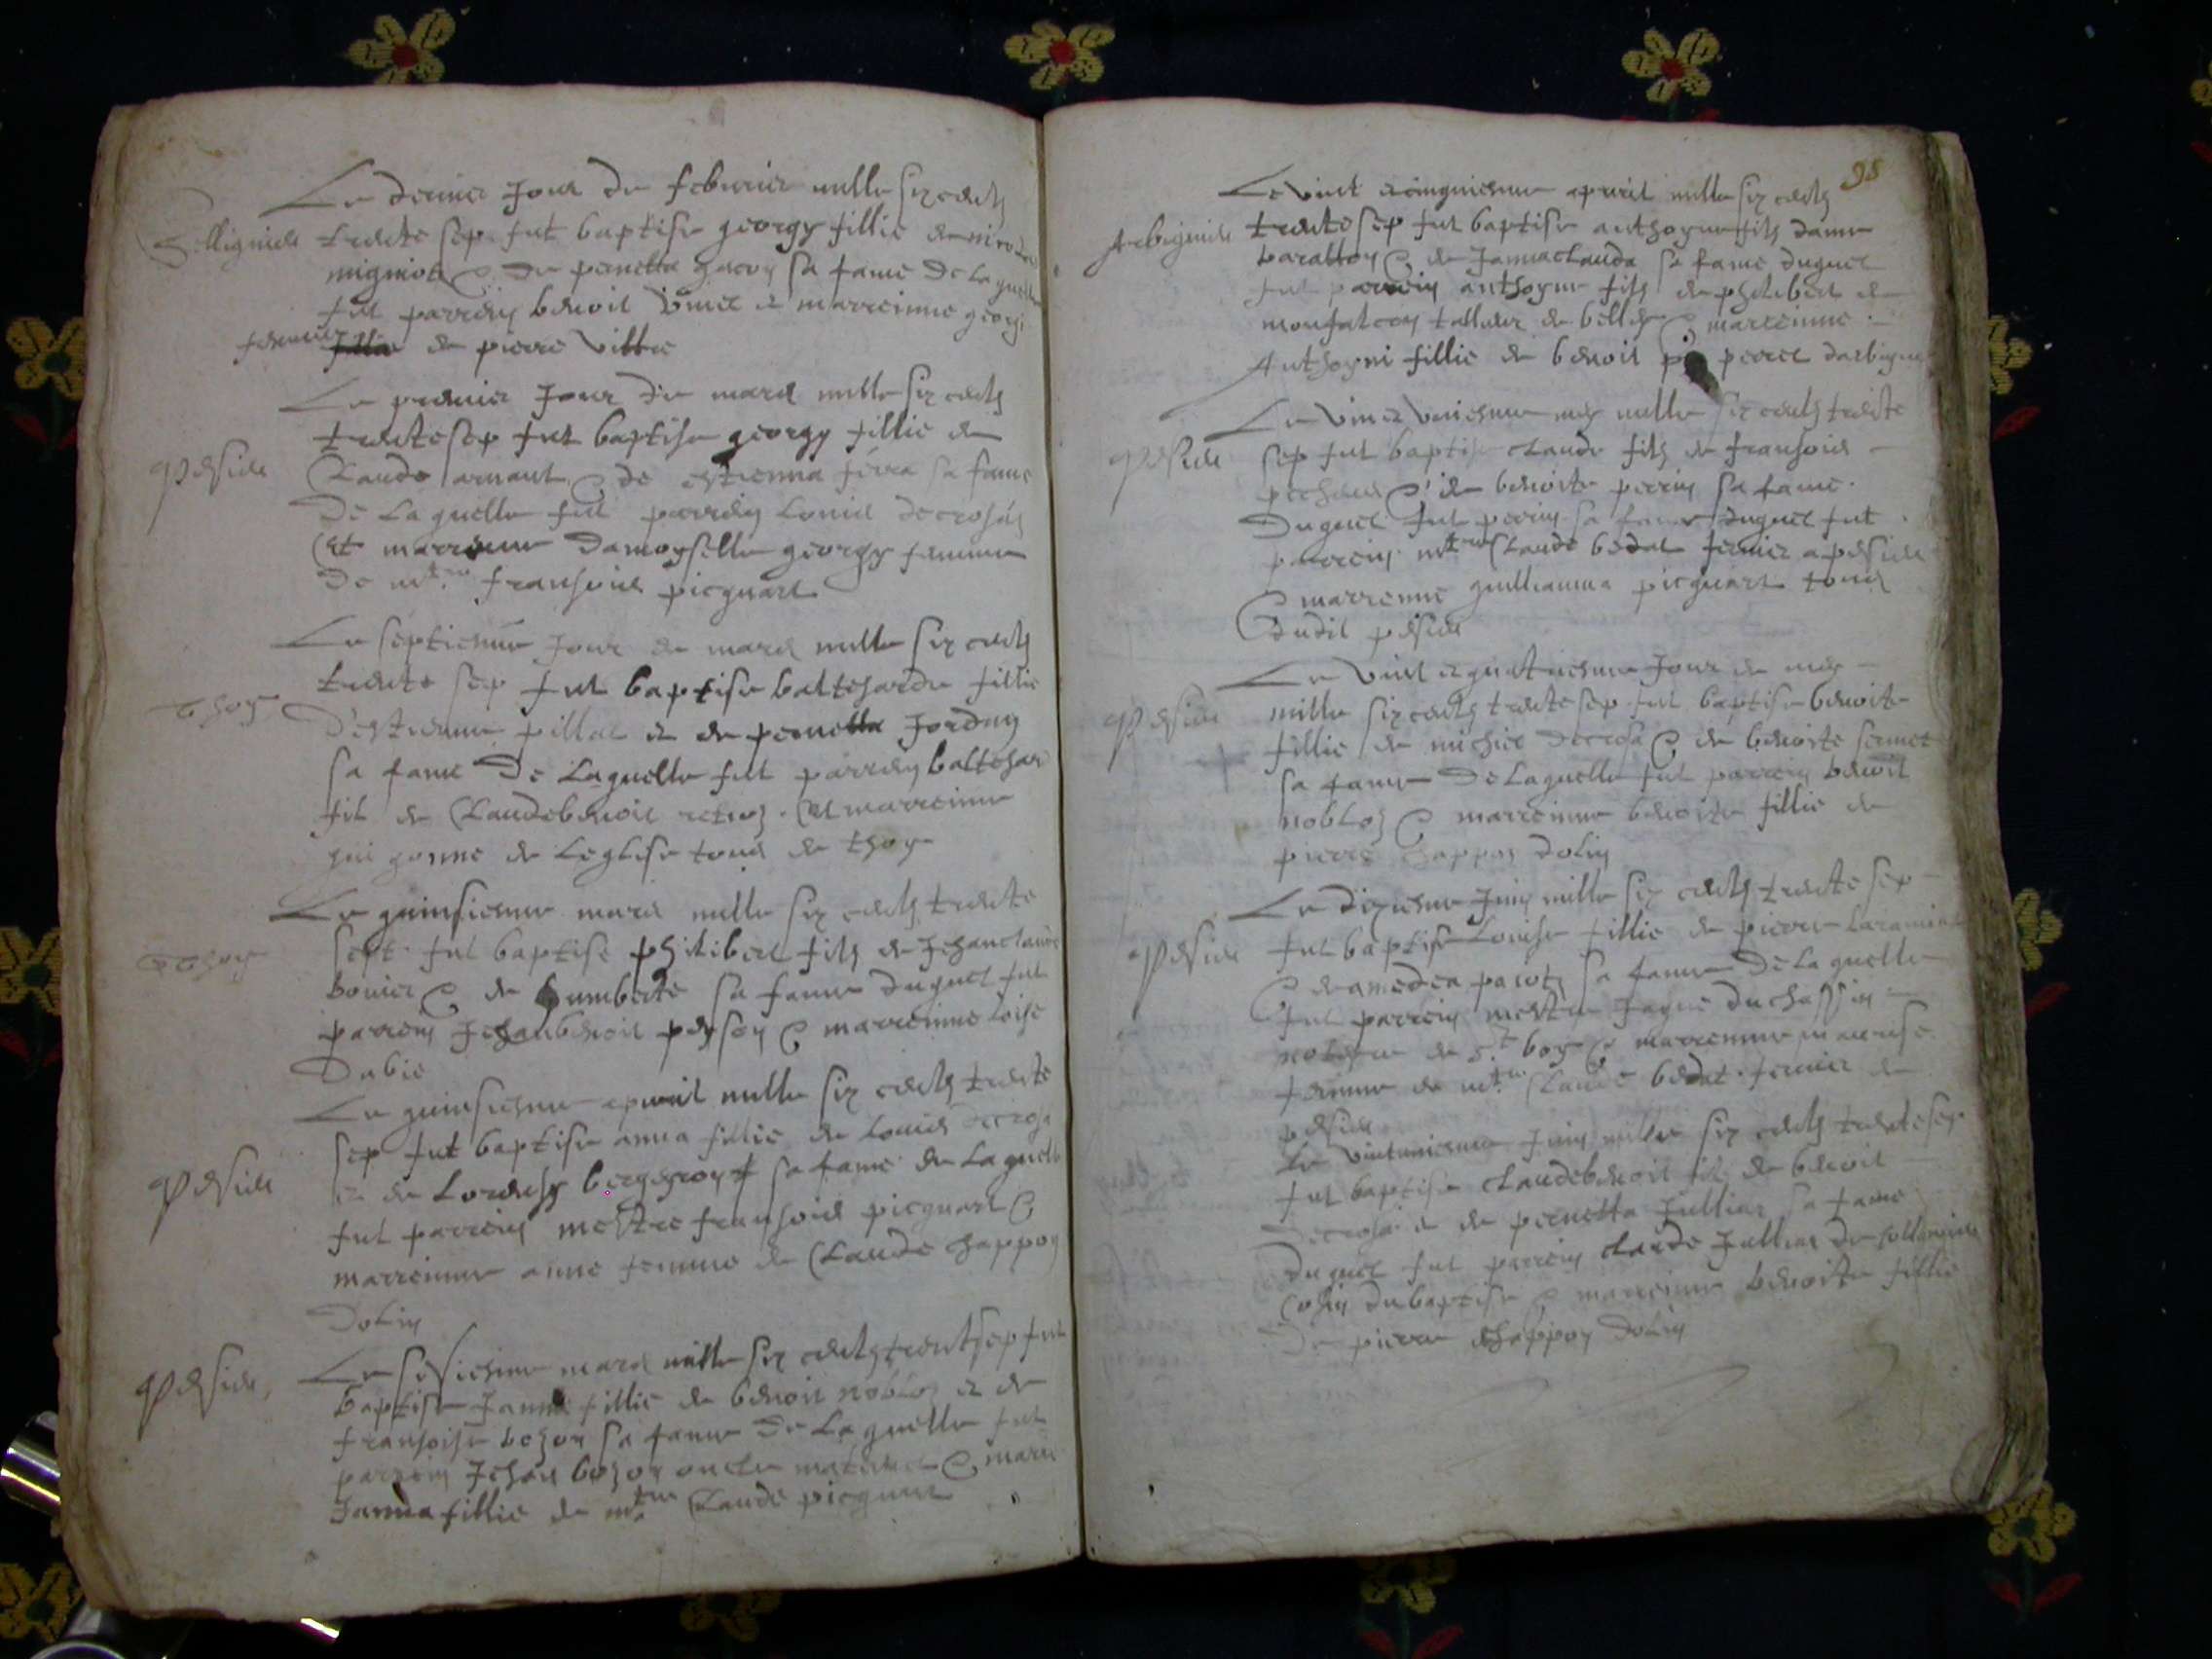 Le dernier Jour de feburier mille six centz
Sillignieu trente sep fut baptise georgy fillie de
migniot & de pernetta gacon sa fame De laquelle
fut parrein benoit vinet et marreinne georgi
femme fillie de pierre Villie
Le premier Jour de mars mille six centz
trente sep fut baptise georgy fillie de
Peisieu Claude arnaut & de estienna ferra sa fame
De laquelle fut parrein Louis decrosa
Et marreinne damoyselle georgy femme
De mtre fransois picquart
Le septiesme Jour de mars mille six centz
trente sep fut baptise balteharde fillie
Thoy D'estienne pillat et de pernetta Jordan
sa fame De Laquelle fut parrein baltehar
fil de Claudebenoit Et marreinne
guigonne de Leglise tous de thoy
Le quinsiesme mars mille six centz trente
Thoy sept fut baptise philibert filz de Jehanclaude
bonier & de humberte sa fame duquel fut
parrein Jehanbenoit peyson & marreinne loise
Dubie
Le quinsiesme apvril mille six centz trente
sep fut baptise anna fillie de Louis decrosa
Peisieu et de Loransy bergeront sa fame de Laquelle
fut parrein mestre fransois picquart &
marreinne anne femme de Claude chappon
Dolin
Le sesiesme mars mille six centz trentsep fut
Peisieu baptise Janna fillie de benoit nobloz et de
fransoise bozon sa fame De Laquelle fut
parrein Jehan bozon oncle maternel & marr
Janna fillie de mtre Claude picquart
95
Le vint et cinquiesme apvril mille six centz
Arbignieu trente sep fut baptise anthoyne filz dame
baratton & de Jannaclauda sa fame duquel
fut parrein anthoyne filz de philibert de
monfalcon talleur de belley & marreinne
Anthoyni fillie de benoit perret darbignieu
Le vint et uniesme may mille six centz trente
Peisieu sep fut baptise claude filz de fransois
pecheur & de benoite perrin sa fame
Duquel fut perrin sa fame duquel fut
parrein mtre Claude bedat fermier a peisieu
& marrenne guillauma picquart tous
dudit peisieu
Le vint et quatriesme Jour de may
Peisieu mille six centz trente sep fut baptise benoite
fillie de michiel decrosa & de benoite
sa fame De Laquelle fut parrein benoit
nobloz & marreinne benoite fillie de
pierre chappon dolin
Le diziesme Juin mille six centz trente sep
Peisieu fut baptise Louise fillie de pierre
& de amedea pacotz sa fame De laquelle
fut parrein mestre Jaque duchassin
notaire de St boy & marrenne
femme de mtre Claude bedat fermier de
peisieu
Le vintuniesme Juin mille six centz trente sep
fut baptise claudebenoit fil de benoit
Decrosa et de pernetta Jullian sa fame
duquel fut parrein claude Jullian de sillignieu
Cosin du baptise & marreinne benoite fillie
De pierre chappon dolin